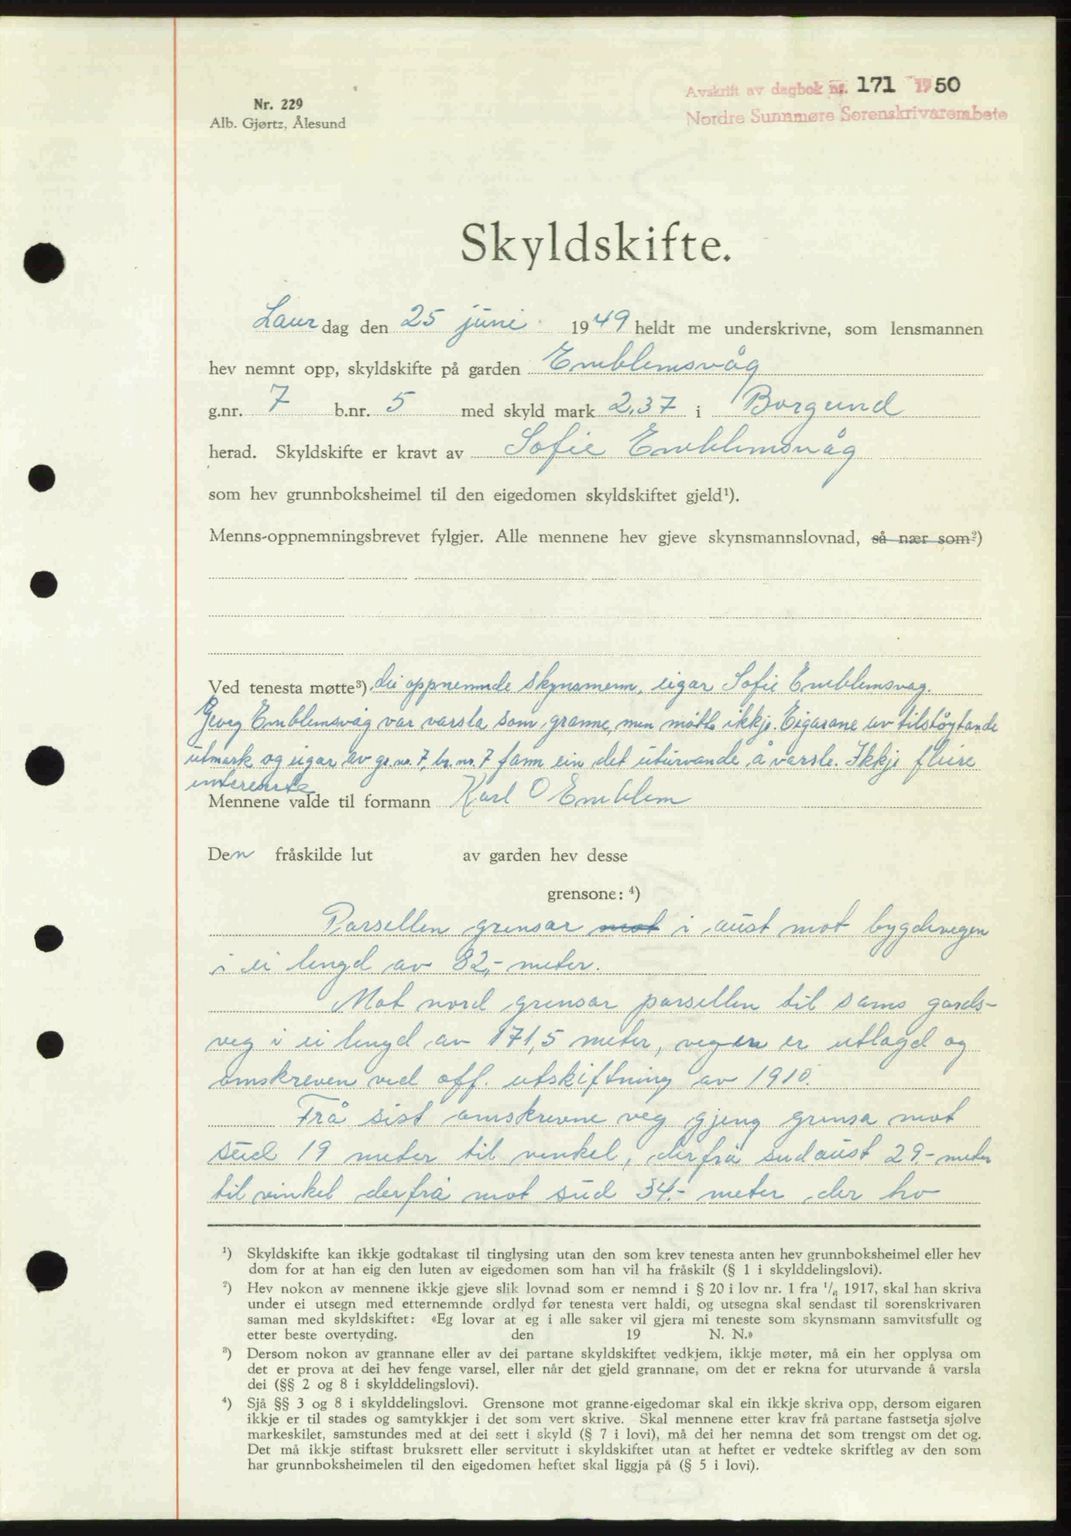 Nr. 229
Alb. Gjørtz, Ålesund
Avskrift av dagbok nr. 171 1950
Nordre Sunnmøre Sorenskrivarembete
Skyldskifte.
Laurdag den 25 juni 1949 heldt me underskrivne, som lensmannen
hev nemnt opp, skyldskifte på garden Emblemsvåg
g.nr. 7 b.nr. 5 med skyld mark 2,37 i Borgund
herad. Skyldskifte er kravt av Sofie Emblemsvåg
som hev grunnboksheimel til den eigedomen skyldskiftet gjeld¹).
Menns-oppnemningsbrevet fylgjer. Alle mennene hev gjeve skynsmannslovnad, så nær som²)
Ved tenesta møtte³) dei oppnemnde skynsmenn, eigar Sofie Emblemsvåg.
Georg Emblemsvåg var varsla som granne, men møtte ikkje. Eigarane av tilstøytande
utmark og eigar av gr.nr. 7, br.nr. 7 fann ein det uturvande å varsle. Ikkje fleire
interesserte
Mennene valde til formann Karl O Emblem
Den fråskilde lut av garden hev desse
grensone: ⁴)
Parsellen grensar mot i aust mot bygdevegen
i ei lengd av 82,- meter.
Mot nord grensar parsellen til sams gards-
veg i ei lengd av 171,5 meter, vegen er utlagd og
omskreven ved off. utskiftning av 1910.
Frå sist omskrevne veg gjeng grensa mot
sud 19 meter til vinkel, derfrå sudaust 29,- meter
til vinkel derfrå mot sud 34,- meter der ho
¹) Skyldskifte kan ikkje godtakast til tinglysing utan den som krev tenesta anten hev grunnboksheimel eller hev
dom for at han eig den luten av eigedomen som han vil ha fråskilt (§ 1 i skylddelingslovi).
²) Hev nokon av mennene ikkje gjeve slik lovnad som er nemnd i § 20 i lov nr. 1 fra ¹/₆ 1917, skal han skriva
under ei utsegn med etternemnde ordlyd før tenesta vert haldi, og utsegna skal sendast til sorenskrivaren
saman med skyldskiftet: «Eg lovar at eg i alle saker vil gjera mi teneste som skynsmann samvitsfullt og
etter beste overtyding. den 19 N. N.»
³) Dersom nokon av grannane eller av dei partane skyldskiftet vedkjem, ikkje møter, må ein her opplysa om
det er prova at dei hev fenge varsel, eller når det gjeld grannane, om det er rekna for uturvande å varsla
dei (§§ 2 og 8 i skylddelingslovi).
⁴) Sjå §§ 3 og 8 i skylddelingslovi. Grensone mot granne-eigedomar skal ein ikkje skriva opp, dersom eigaren
ikkje er til stades og samtykkjer i det som vert skrive. Skal mennene etter krav frå partane fastsetja sjølve
markeskilet, samstundes med at dei sett i skyld (§ 7 i lovi), må dei her nemna det som trengst om det og.
Det må ikkje stiftast bruksrett eller servitutt i skyldskiftet utan at heftet er vedteke skriftleg av den som
har grunnboksheimelen til den eigedomen heftet skal liggja på (§ 5 i lovi).